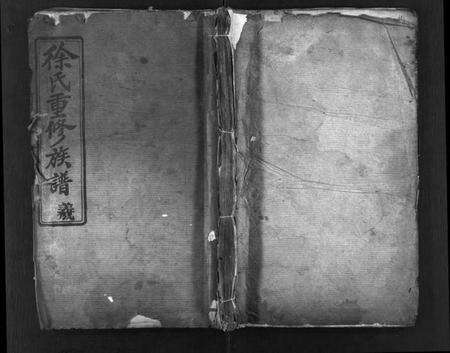 徐氏重修族譜
羲